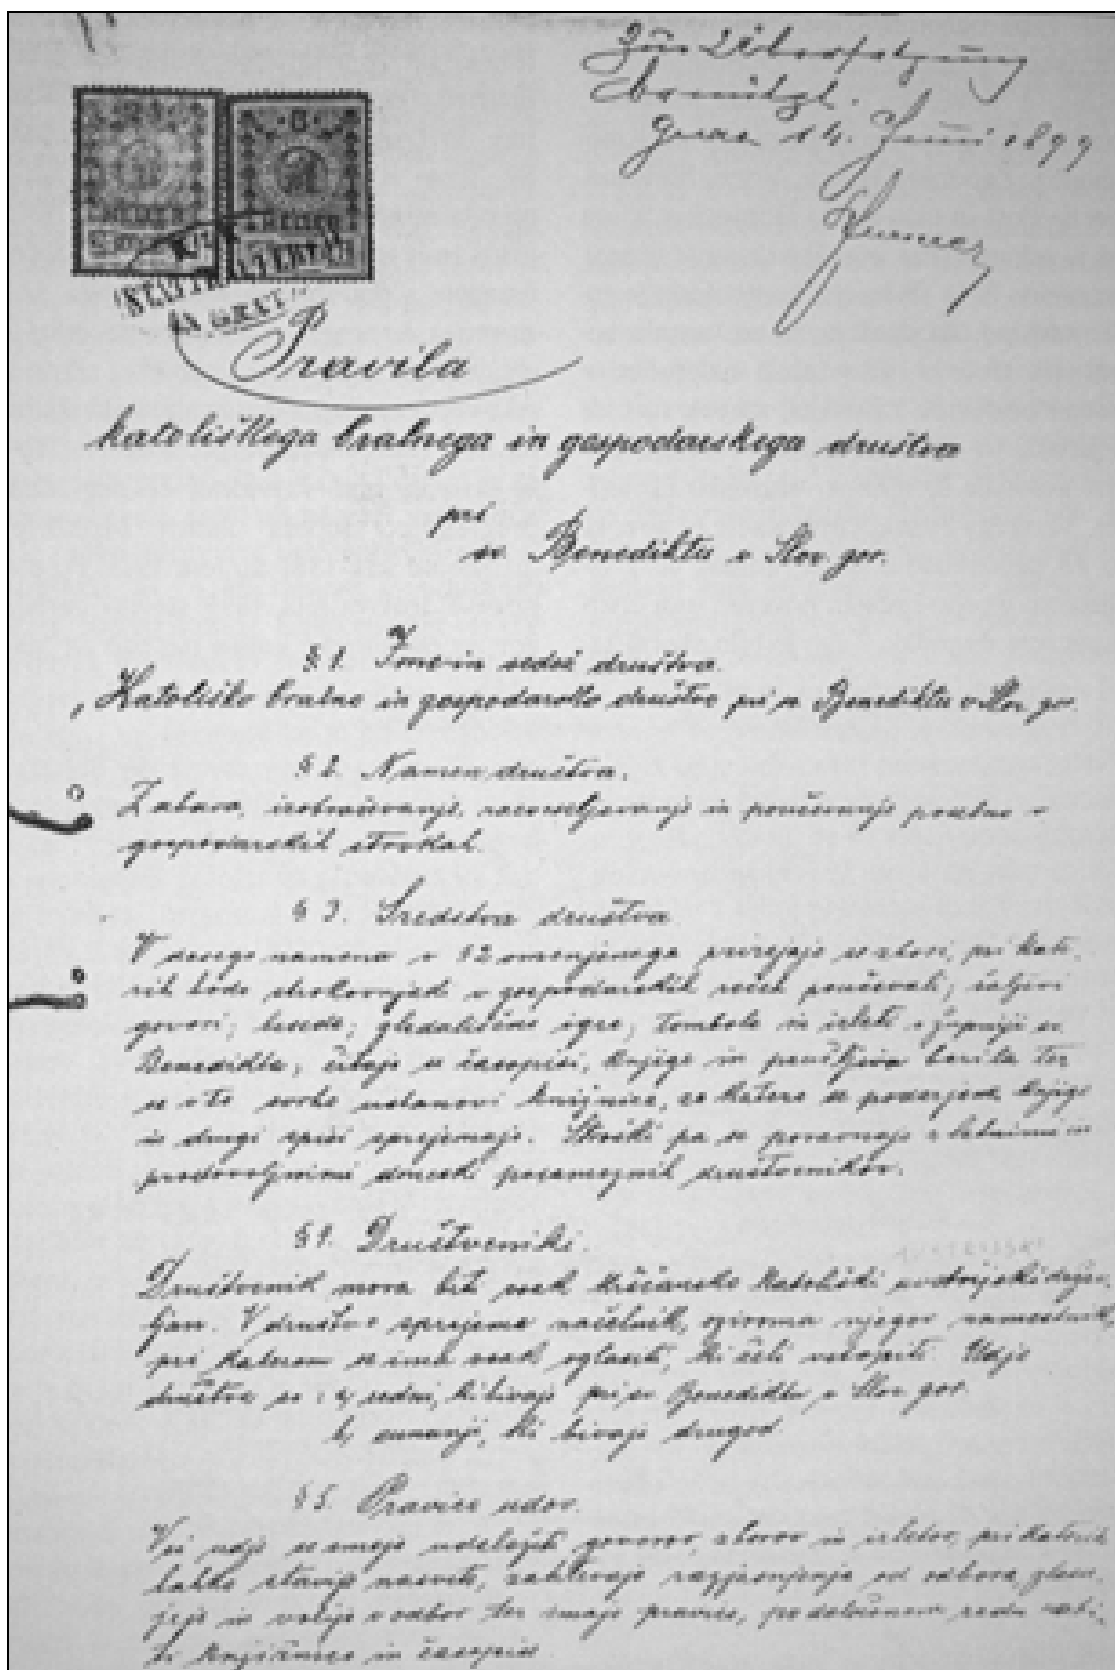 Zur Übersetzung
benützt.
Graz 14. Juni 1899
HELLER HELLER
K.K.
STATTHALTEREI
IN GRAZ
Pravila
katoliškega bralnega in gospodarskega društva
pri
sv. Benediktu v Slov. gor.
§ 1. Ime in sedež društva.
„Katoliško bralno in gospodarsko društvo pri sv. Benediktu v Slov. gor.
§ 2. Namen društva.
Zabava, izobraževanje, razveseljevanje in podučevanje posebno v
gospodarskih strokah.
§ 3. Sredstva društva
V dosego namena v §2 omenjenega prirejajo se zbori, pri kate-
rih bodo strokovnjaki v gospodarskih rečeh podučevali; šaljivi
govori; besede; gledališčne igre; tombole in izleti v župniji sv.
Benedikta; čitajo se časopisi, knjige in podučljiva berila ter
se v to svrho ustanovi knjižnica, za katero se podarjene knjige
in drugi spisi sprejemajo. Stroški pa se poravnajo z letnimi in
prostovoljnimi doneski posameznih društvenikov.
§ 4. Društveniki.
Društvenik mora biti vsak krščansko katoliški avstrijski držav-
ljan. V društvo sprejema načelnik, oziroma njegov namestnik,
pri katerem se ima vsak oglasiti, ki želi vstopiti. Udje
društva so: a, redni, ki bivajo pri sv. Benediktu v Slov. gor.
b, zunanji, ki bivajo drugod
§ 5. Pravice udov.
Vsi udje se smejo udeležiti govorov, zborov in izletov, pri katerih
lahko stavijo nasvete, zahtevajo razjasnjenja od odbora, glasu-
jejo in volijo v odbor ter imajo pravico, po določenem redu rabi-
ti knjižnico in časopise.